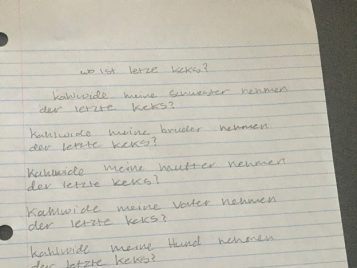 wo ist letze keks?
kahlwide meine scruester nehmen
der letzte keks?
kahlwide meine bruder nehmen
der letzte keks?
kahlwide meine mutter nehmen
der letzte keks?
kahlwide meine vater nehmen
der letzte keks?
kahlwide meine Hund nehmen
der letzte keks?